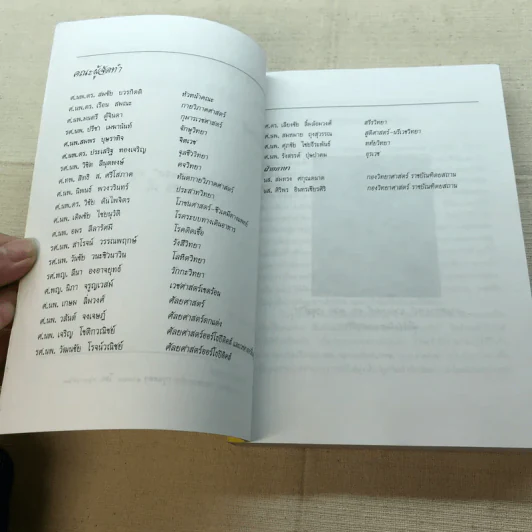 คณะผู้จัดทำ
ศ.นพ.ดร. สมชัย บวรกิตติ หัวหน้าคณะ
ศ.นพ.ดร. เรือน สมณะ กายวิภาคศาสตร์
ศ.นพ.มนตรี ตู้จินดา กุมารเวชศาสตร์
รศ.นพ. ปรีชา จักษุวิทยา
ศ.นพ.สมพร บุษราทิจ จิตเวช
ศ.นพ.ดร. ประเสริฐ ทองเจริญ จุลชีววิทยา
รศ.นพ. วิชิต ตจวิทยา
ศ.ทพ. สิทธิ ส. ศรีโสภาค ทันตกายวิภาคศาสตร์
ศ.นพ. นิพนธ์ พวงวรินทร์ ประสาทวิทยา
ศ.นพ.ดร. วิชัย ตันไพจิตร
ศ.นพ. เติมชัย ไชยนุวัติ โรคระบบทางเดินอาหาร
ศ.นพ. อมร ลีลารัศมี โรคติดเชื้อ
รศ.นพ. สาโรจน์ วรรณพฤกษ์ รังสีวิทยา
รศ.นพ. วันชัย วนะชิวนาวิน โลหิตวิทยา
รศ.พญ. ลีนา องอาจยุทธ วักกะวิทยา
ศ.พญ. นิภา จรูญเวสม์ เวชศาสตร์เขตร้อน
ศ.นพ. เกษม ลิ่มวงศ์ ศัลยศาสตร์
ศ.นพ. วสันต์ จงเจษฎ์ ศัลยศาสตร์ตกแต่ง
ศ.นพ. เจริญ โชติกวณิชย์ ศัลยศาสตร์ออร์โธปิดิคส์
รศ.นพ. วัฒนชัย โรจน์วณิชย์ ศัลยศาสตร์ออร์โธปิดิคส์
ศ.ดร. เลียงชัย ลิ้มล้อมวงศ์ สรีรวิทยา
ศ.นพ. สมหมาย ถุงสุวรรณ สูติศาสตร์-นรีเวชวิทยา
ศ.นพ. ศุภชัย ไชยธีระพันธ์ หทัยวิทยา
รศ.นพ. รังสรรค์ ปุษปาคม อุรเวช
นส. สมทรง กองวิทยาศาสตร์ ราชบัณฑิตยสถาน
นส. ศิริพร อินทรเชียรศิริ กองวิทยาศาสตร์ ราชบัณฑิตยสถาน